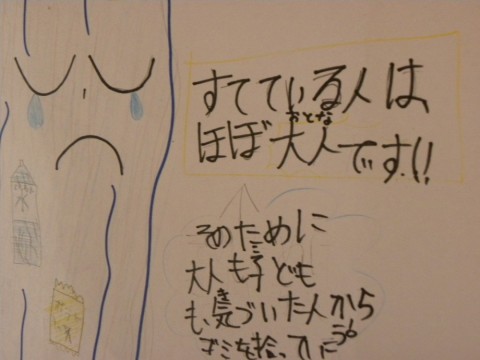 すてている人は、
ほぼ大人です!!
おとな
そのために
大人も子ども
も、気づいた人から
ゴミを拾って
水